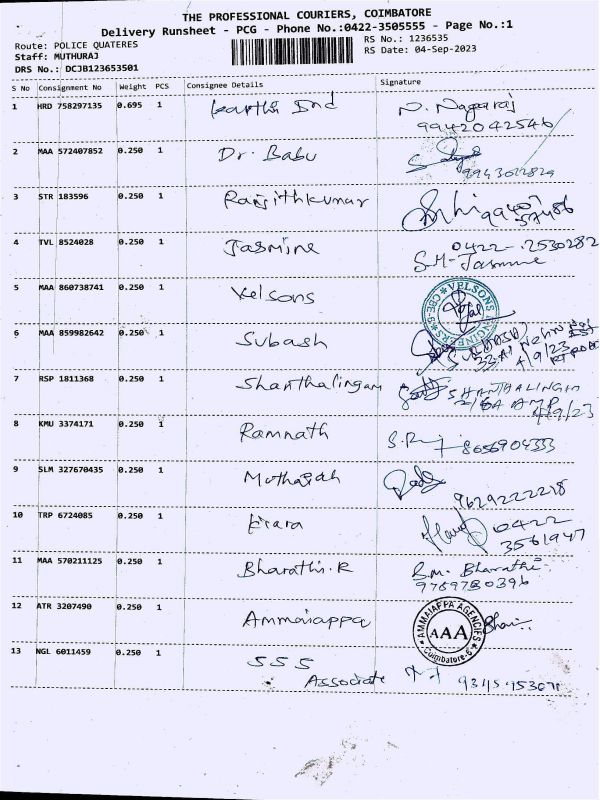 THE PROFESSIONAL COURIERS, COIMBATORE
Delivery Runsheet - PCG - Phone No.:0422-3505555 - Page No.:1
Route: POLICE QUATERES
RS No.: 1236535
Staff: MUTHURAJ
RS Date: 04-Sep-2023
DRS No.: DCJB123653501
S No Consignment No Weight PCS Consignee Details Signature
1 HRD 758297135 0.695 1 Karthi Ind N. Nagaraj
9942042546
2 MAA 572407852 0.250 1 Dr. Babu
9943022829
3 STR 183596 0.250 1 Ranjithkumar
4 TVL 8524028 0.250 1 Jasmine 0422-2530282
S.M-Jasmine
5 MAA 860738741 0.250 1 Velsons
VELSONS ENGINEERS CBE-6
6 MAA 859982642 0.250 1 Subash
4/9/23
7 RSP 1811368 0.250 1 Shanthalingam SHANTHALINGAM
4/9/23
8 KMU 3374171 0.250 1 Ramnath 8056904333
9 SLM 327670435 0.250 1 Muthaiah
9629222228
10 TRP 6724085 0.250 1 Kiara 0422
3561947
11 MAA 570211125 0.250 1 Bharathi.R B.M. Bharathi
9789730396
12 ATR 3207490 0.250 1 Ammaiappa
AMMAIAPPA AGENCIES AAA Coimbatore-6
13 NGL 6011459 0.250 1 SSS
Associate